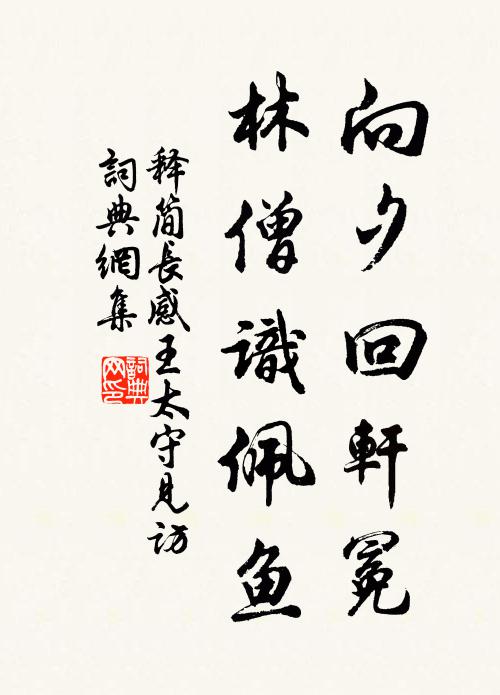 向夕回軒冕
林僧識佩鱼
释简長感王太守見访
詞典網集
詞典网印